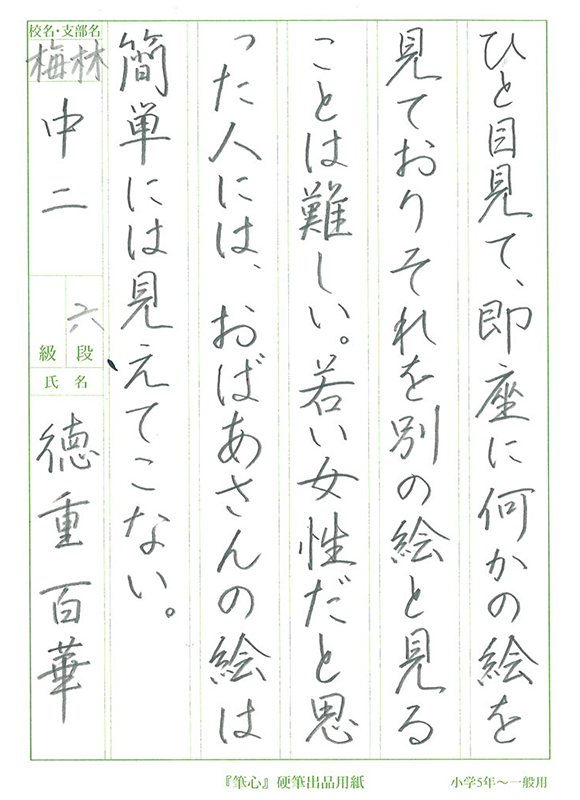 ひと目見て、即座に何かの絵を
見ておりそれを別の絵と見る
ことは難しい。若い女性だと思
った人には、おばあさんの絵は
簡単には見えてこない。
校名・支部名
梅林
中二
六
級 段
氏 名
徳重百華
『筆心』硬筆出品用紙
小学5年～一般用